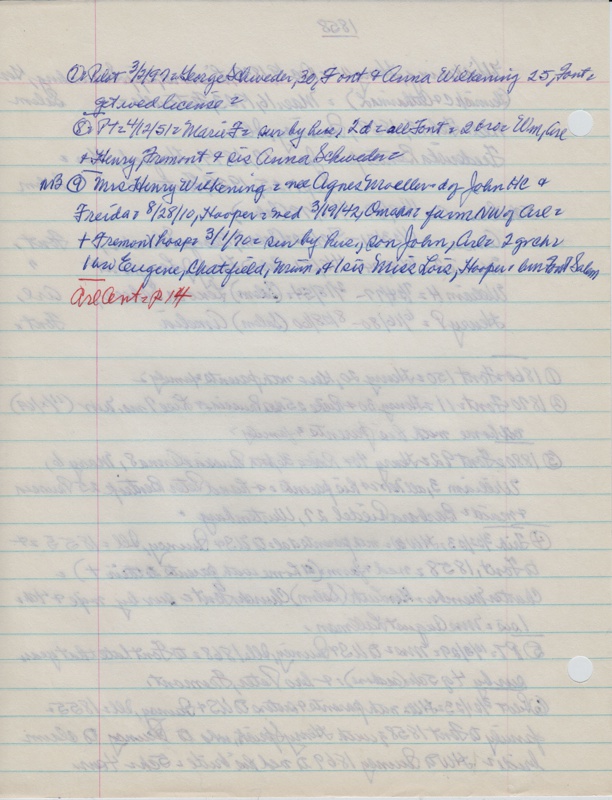 ⑦ Pilot 3/5/97 = George Schweder, 30, Font & Anna Wilkening 25, Font =
get wed license =
⑧ PT = 4/12/51 = Marie F = sur by hus, 2d = all Font = 2 bro = Wm, Arl
+ Henry, Fremont & sis Anna Schweder =
NB ⑨ Mrs Henry Wilkening = nee Agnes Moeller = d of John HC &
Freida = 8/28/10, Hooper = wed 3/19/42, Omaha = farm NW of Arl =
+ Fremont hosp 3/1/70 = sur by hus, son John, Arl = 2 grch =
1 bro Eugene, Chatfield, Minn, & 1 sis Miss Lois, Hooper = bur Font Salem
Arl Cent = P X 4